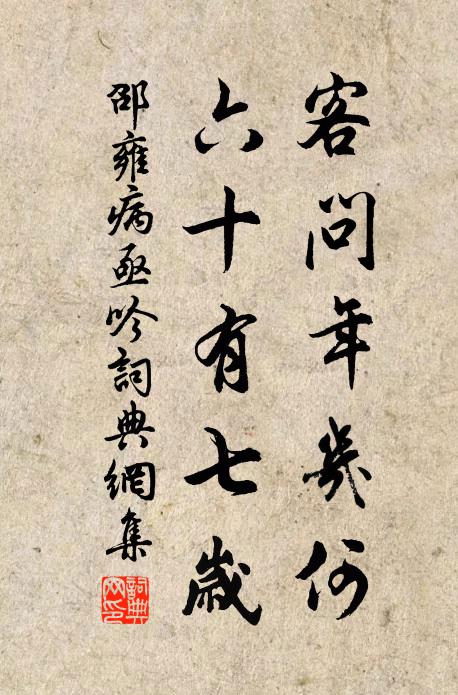 客問年幾何
六十有七歲
邵雍病亟吟詞典網集
詞典網印